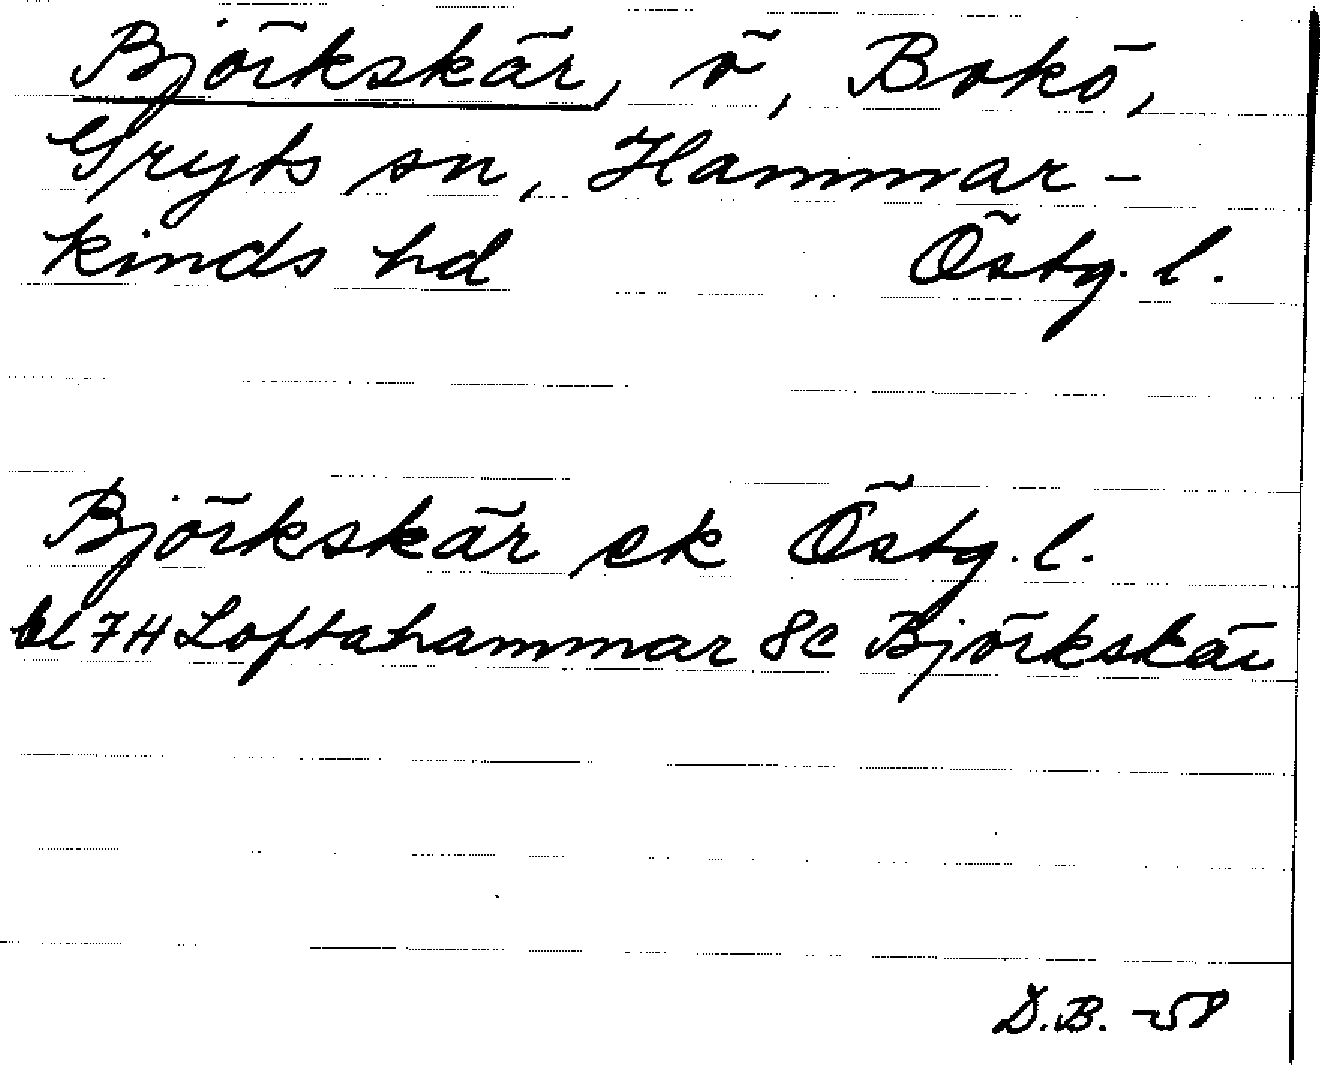 Björkskär, ö, Bokö,
Gryts sn, Hammar-
kinds hd Östg. l.
Björkskär ek Östg. l.
bl 7H Loftahammar 8c Björkskär
D.B. -58